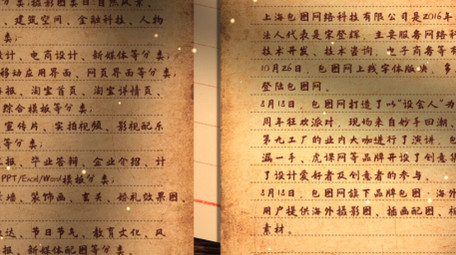 包括：摄影图类目：自然风景、
建筑空间、金融科技、人物
类；
设计、电商设计、新媒体等分类；
移动应用界面、网页界面等分类；
海报、淘宝首页、淘宝详情页、
综合模板等分类；
宣传片、实拍视频、影视配乐
等分类；
报、毕业答辩、企业介绍、计
PPT/Excel/Word模板分类；
墙、装饰画、玄关、婚礼效果图、
达、节日节气、教育文化、风
报、新媒体配图等分类。
上海包图网络科技有限公司是2016年
法人代表是宋登辉。主要服务网络科技
技术开发、技术咨询、电子商务等有
10月26日，包图网上线字体版块，
登陆包图网。
8月18日，包图网打造了以“设舍人”为
周年狂欢派对，现场来自妙手回潮、
第九工厂的业内大咖进行了演讲，包
漏一手、虎课网等品牌开设了创意集
了设计爱好者及创意者的参与。
8月18日，包图网旗下品牌包图·海外
用户提供海外摄影图、插画配图、视
素材。